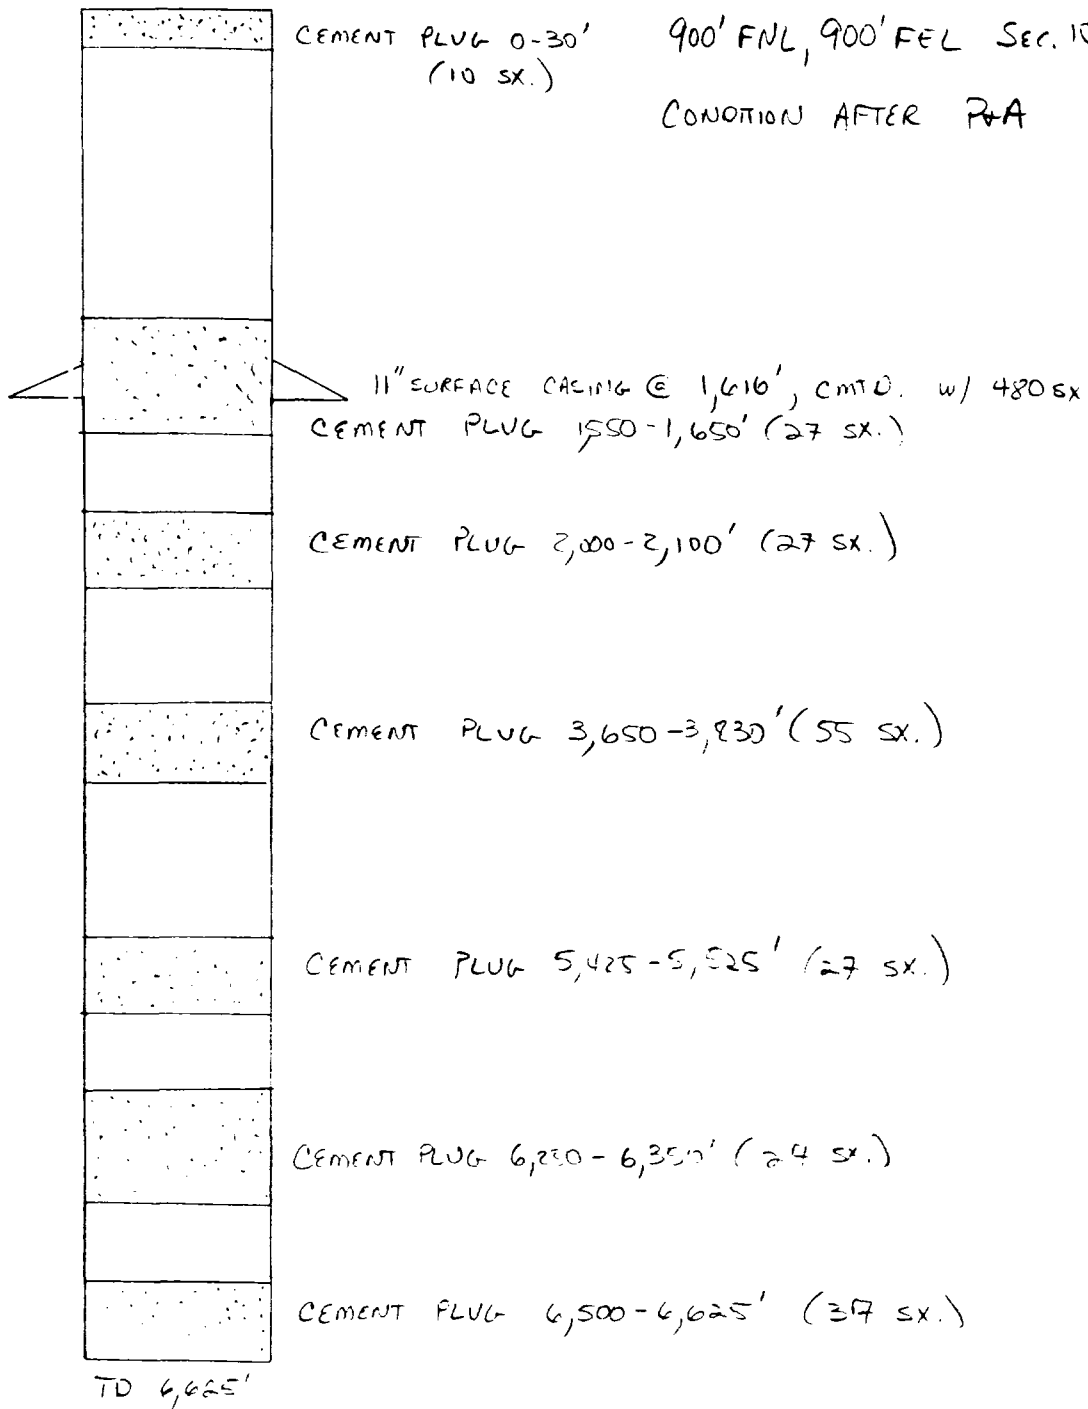 CEMENT PLUG 0-30'
(10 SX.)
900' FNL, 900' FEL SEC. 10
CONDITION AFTER P+A
11" SURFACE CASING @ 1,616', CMTD. W/ 480 SX
CEMENT PLUG 1,550-1,650' (27 SX.)
CEMENT PLUG 2,000-2,100' (27 SX.)
CEMENT PLUG 3,650-3,830' (55 SX.)
CEMENT PLUG 5,425-5,525' (27 SX.)
CEMENT PLUG 6,250-6,350' (24 SX.)
CEMENT PLUG 6,500-6,625' (SX.)
TD 6,625'